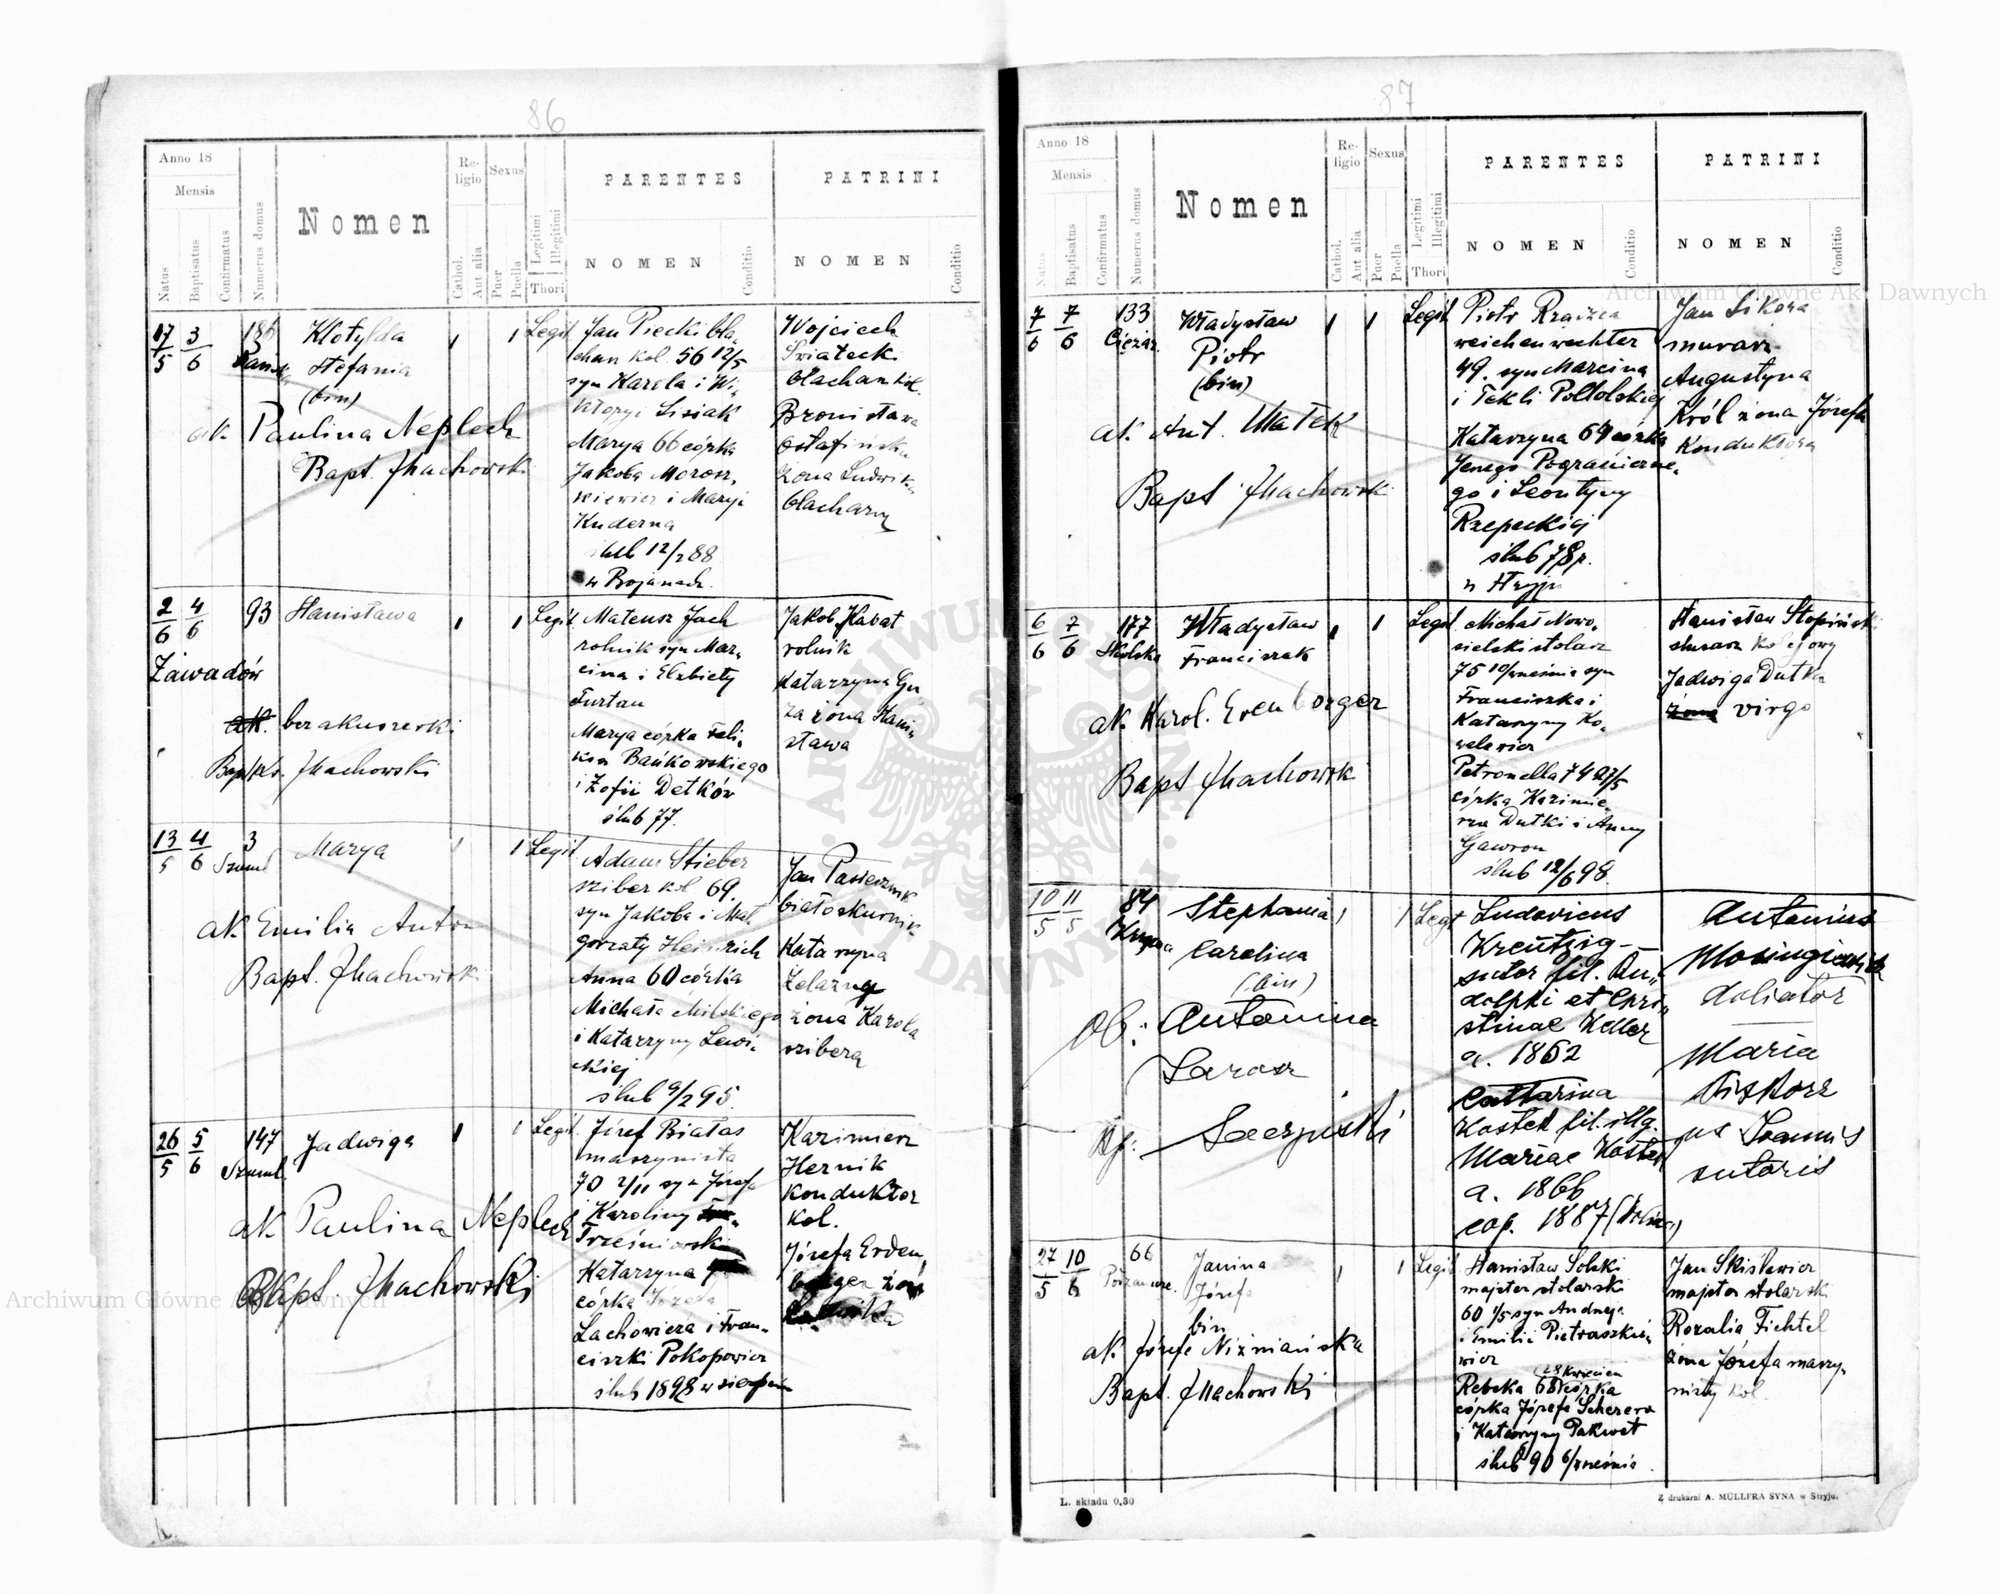 86
Anno 18
Mensis
Natus
Baptisatus
Confirmatus
Numerus domus
Nomen
Religio
Cathol.
Aut alia
Sexus
Puer
Puella
Legitimi
Illegitimi
Thori
PARENTES
NOMEN
Conditio
PATRINI
NOMEN
Conditio
17/5 3/6
Klotylda
Stefania
(bin)
ak. Paulina Neplech
Bapt. Jhachowski
1 1 Legit
Jan Piecki bla,
char kol. 56 12/5
syn Karola i Wi,
ktoryi Lisiak
Marya 66 córka
Jakoba Morosz,
kiewicz i Maryi
Kuderna
ślub 12/2 88
w Bojanach.
Wojciech
Swiatecki
blachar kol.
Bronisława
Ostafińska
żona Ludwika
blacharz
2/6 4/6 93
Zawadów
Stanisława
ak. bez akuszerki
Bapt. Jhachowski
1 1 Legit
Mateusz Jach
rolnik syn Mar,
cina i Elzbiety
Furtan
Marya córka Feli,
ksa Bańkowskiego
i Zofii Detków
ślub 77.
Jakob Kabat
rolnik
Katarzyna Gu
za żona Stani,
sława
13/5 4/6 3
Szuml
Marya
ak. Emilia Anton
Bapt. Jhachowski
1 1 Legit
Adam Stieber
sziber kol 69,
syn Jakoba i Mał
gorzaty Heinrich
Anna 60 córka
Michała Milskiego
i Katarzyny Lewi,
ckiej
ślub 9/2 95.
Jan Pasiecznik
białoskurnik
Katarzyna
Zelazny
żona Karola
szibera
26/5 5/6 147
Szuml.
Jadwiga
ak. Paulina Neplech
Bapt. Jhachowski
1 1 Legit.
Józef Białas
maszynista
70 2/11 syn Józefa
i Karoliny
Trześniowski
Katarzyna
córka Józefa
Lachowicza i Fran-
ciszki Pokopowicz
ślub 1898 w sierpniu
Kazimierz
Hernik
Konduktor
kol.
Józefa Erden,
berger żona
87
Anno 18
Mensis
Natus
Baptisatus
Confirmatus
Numerus domus
Nomen
Religio
Cathol.
Aut alia
Sexus
Puer
Puella
Legitimi
Illegitimi
Thori
PARENTES
NOMEN
Conditio
PATRINI
NOMEN
Conditio
7/6 7/6 133
Władysław
Piotr
(bin)
ak. Ant. Małek
Bapt. Jhachowski
1 1 Legit
Piotr Rządzca
weichenwechter
49. syn Marcina
i Tekli Poltolskiej
Katarzyna 64 córka
Jenego Pograniczne,
go i Leontyny
Rzepeckiej
ślub 78 r.
w Stryju
Jan Sikora
murarz
Augustyna
Król żona Józefa
Konduktora
6/6 7/6 177
Skolska
Władysław
Franciszek
ak. Karol. Erenberger
Bapt Jhachowski
1 1 Legit
Michał Nowo,
sielski stolarz
75 10/wrześnie syn
Franciszka i
Katarzyny Ko,
walewicz
Petronella 74 27/5
córka Kazimie,
rza Dutki i Anny
Gawron
ślub 12/6 98.
Stanisław Stopiński
slusarz kolejowy
Jadwiga Dutka
żona virgo
10/5 11/5 84
Stephania
Carolina
(bin)
Ob: Antonina
Saraz
Bp:
1 1 Legt
Ludovicus
Kreutzig-
sutor fil. Au,,
dolphi et Chri,,
stinae Keller
a. 1862
Catharina
Kostek fil. illg.
Mariae Kostek
a. 1866
cop. 1887
Antonius
doliator
Maria
Piskorz
ux Joannis
sutoris
27/5 10/6 66
Janina
Józefa
bin
ak. Józefe Niźniańska
Bapt. Jhachowski
1 1 Legit
Stanisław Solski
majster stolarski
60 1/5 syn Andrzeja
i Emilii Pietraszkie,
wicz
(28 Kwiecien
Rebeka 68 córka
córka Józefa Scherera
i Katarzyny Pakwet
ślub 90 6/wrześnie.
Jan Skiślewicz
majster stolarski
Rozalia Fichtel
żona Józefa maszy,
nisty kol.
L. składu 0,30
Z drukarni A. MÜLLERA SYNA w Stryju.
Archiwum Główne Akt Dawnych
Archiwum Główne Akt Dawnych
ARCHIWUM GŁÓWNE AKT DAWNYCH